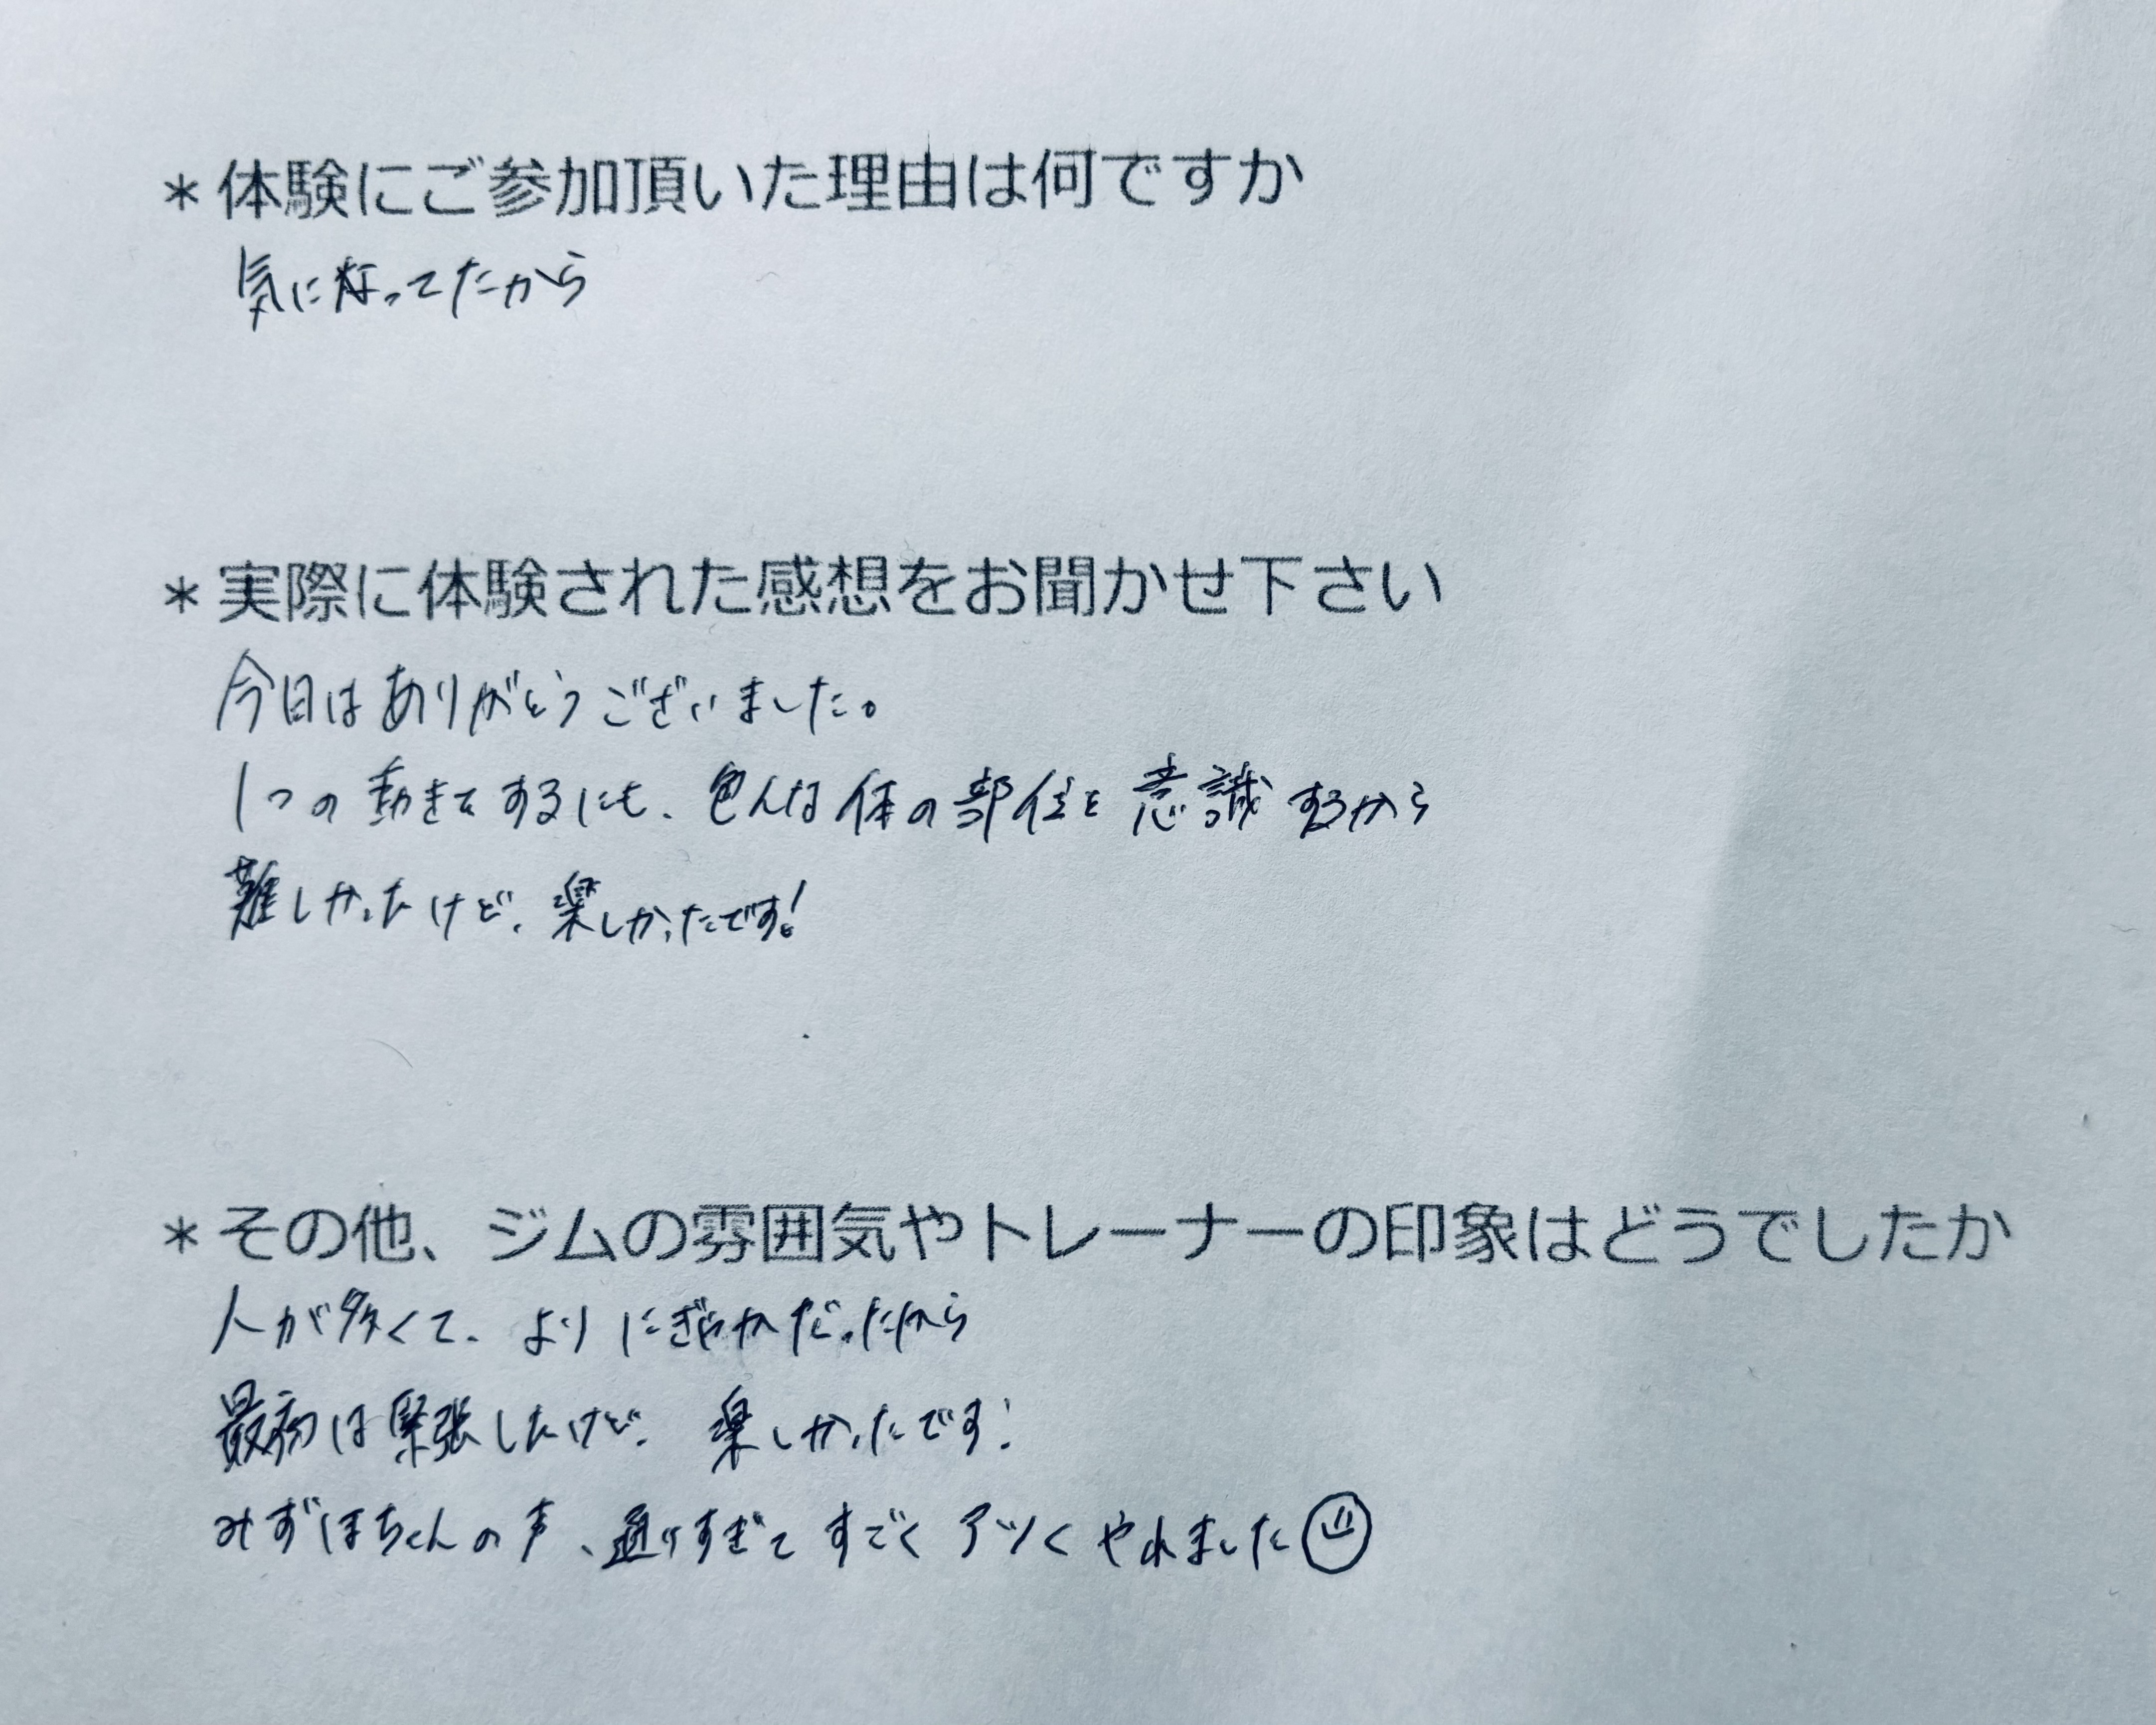 ＊体験にご参加頂いた理由は何ですか
気になってたから
＊実際に体験された感想をお聞かせ下さい
今日はありがとうございました。
1つの動きをするにも、色んな体の部位を意識するから
難しかったけど、楽しかったです!
＊その他、ジムの雰囲気やトレーナーの印象はどうでしたか
人が多くて、よりにぎやかだったから
最初は緊張したけど、楽しかったです!
みずほちゃんの声、通りすぎてすごくアツくやれました☺